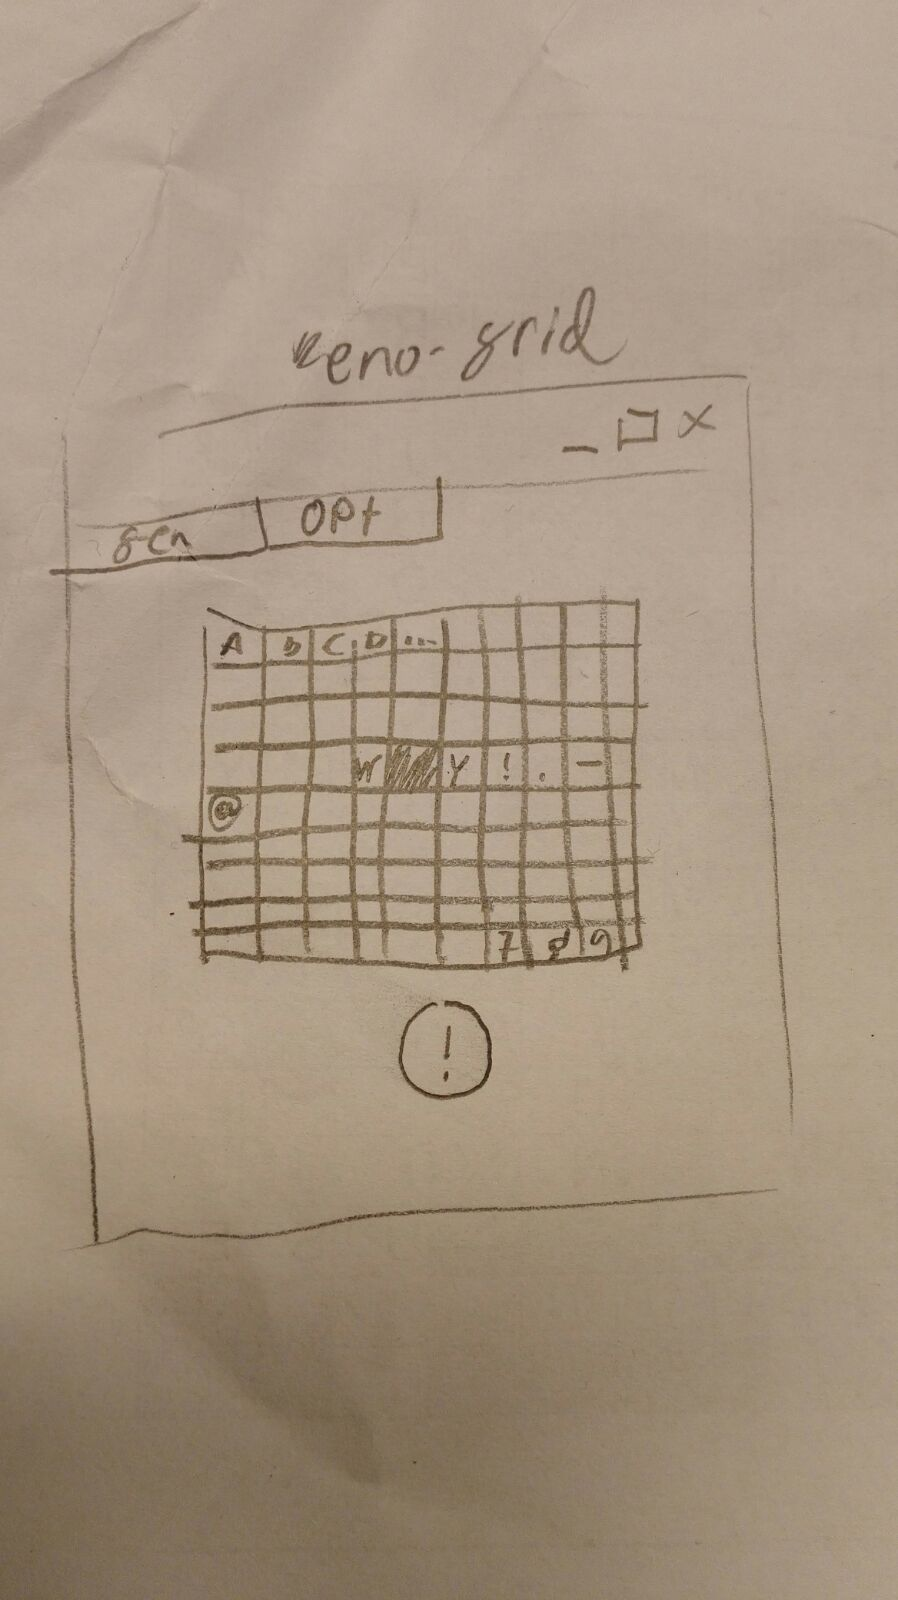 eno-grid
_ □ X
gen OPt
A B C D ...
W Y ! . -
@
7 8 9
!